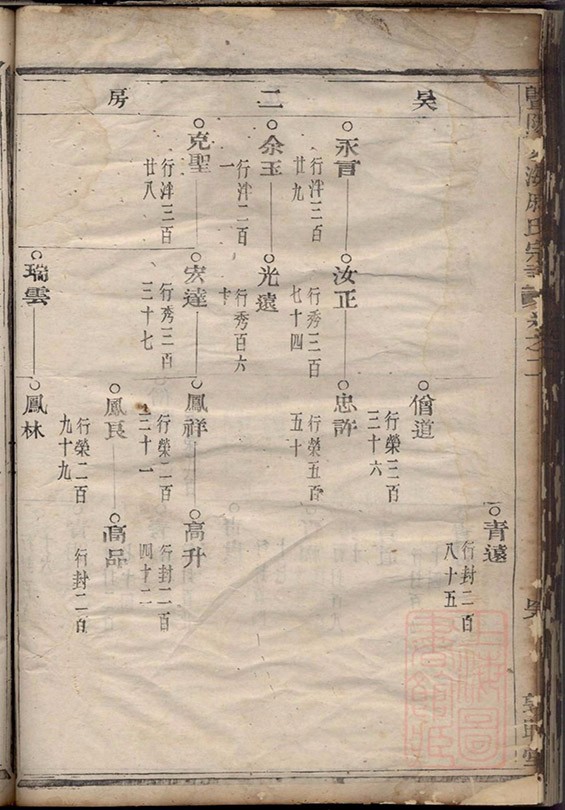 昊二房
永言
行泮三百
廿九
汝正
行秀三百
七十四
忠許
行榮五百
五十
僧道
行榮三百
三十六
青遠
行封二百
八十五
余玉
行泮二百
一
光遠
行秀百六
十
克聖
行泮三百
廿八
宏達
行秀三百
三十七
鳳祥
行榮二百
三十一
高升
行封二百
四十二
鳳良
行榮二百
九十九
高品
行封二百
瑞雲
鳳林
氏宗